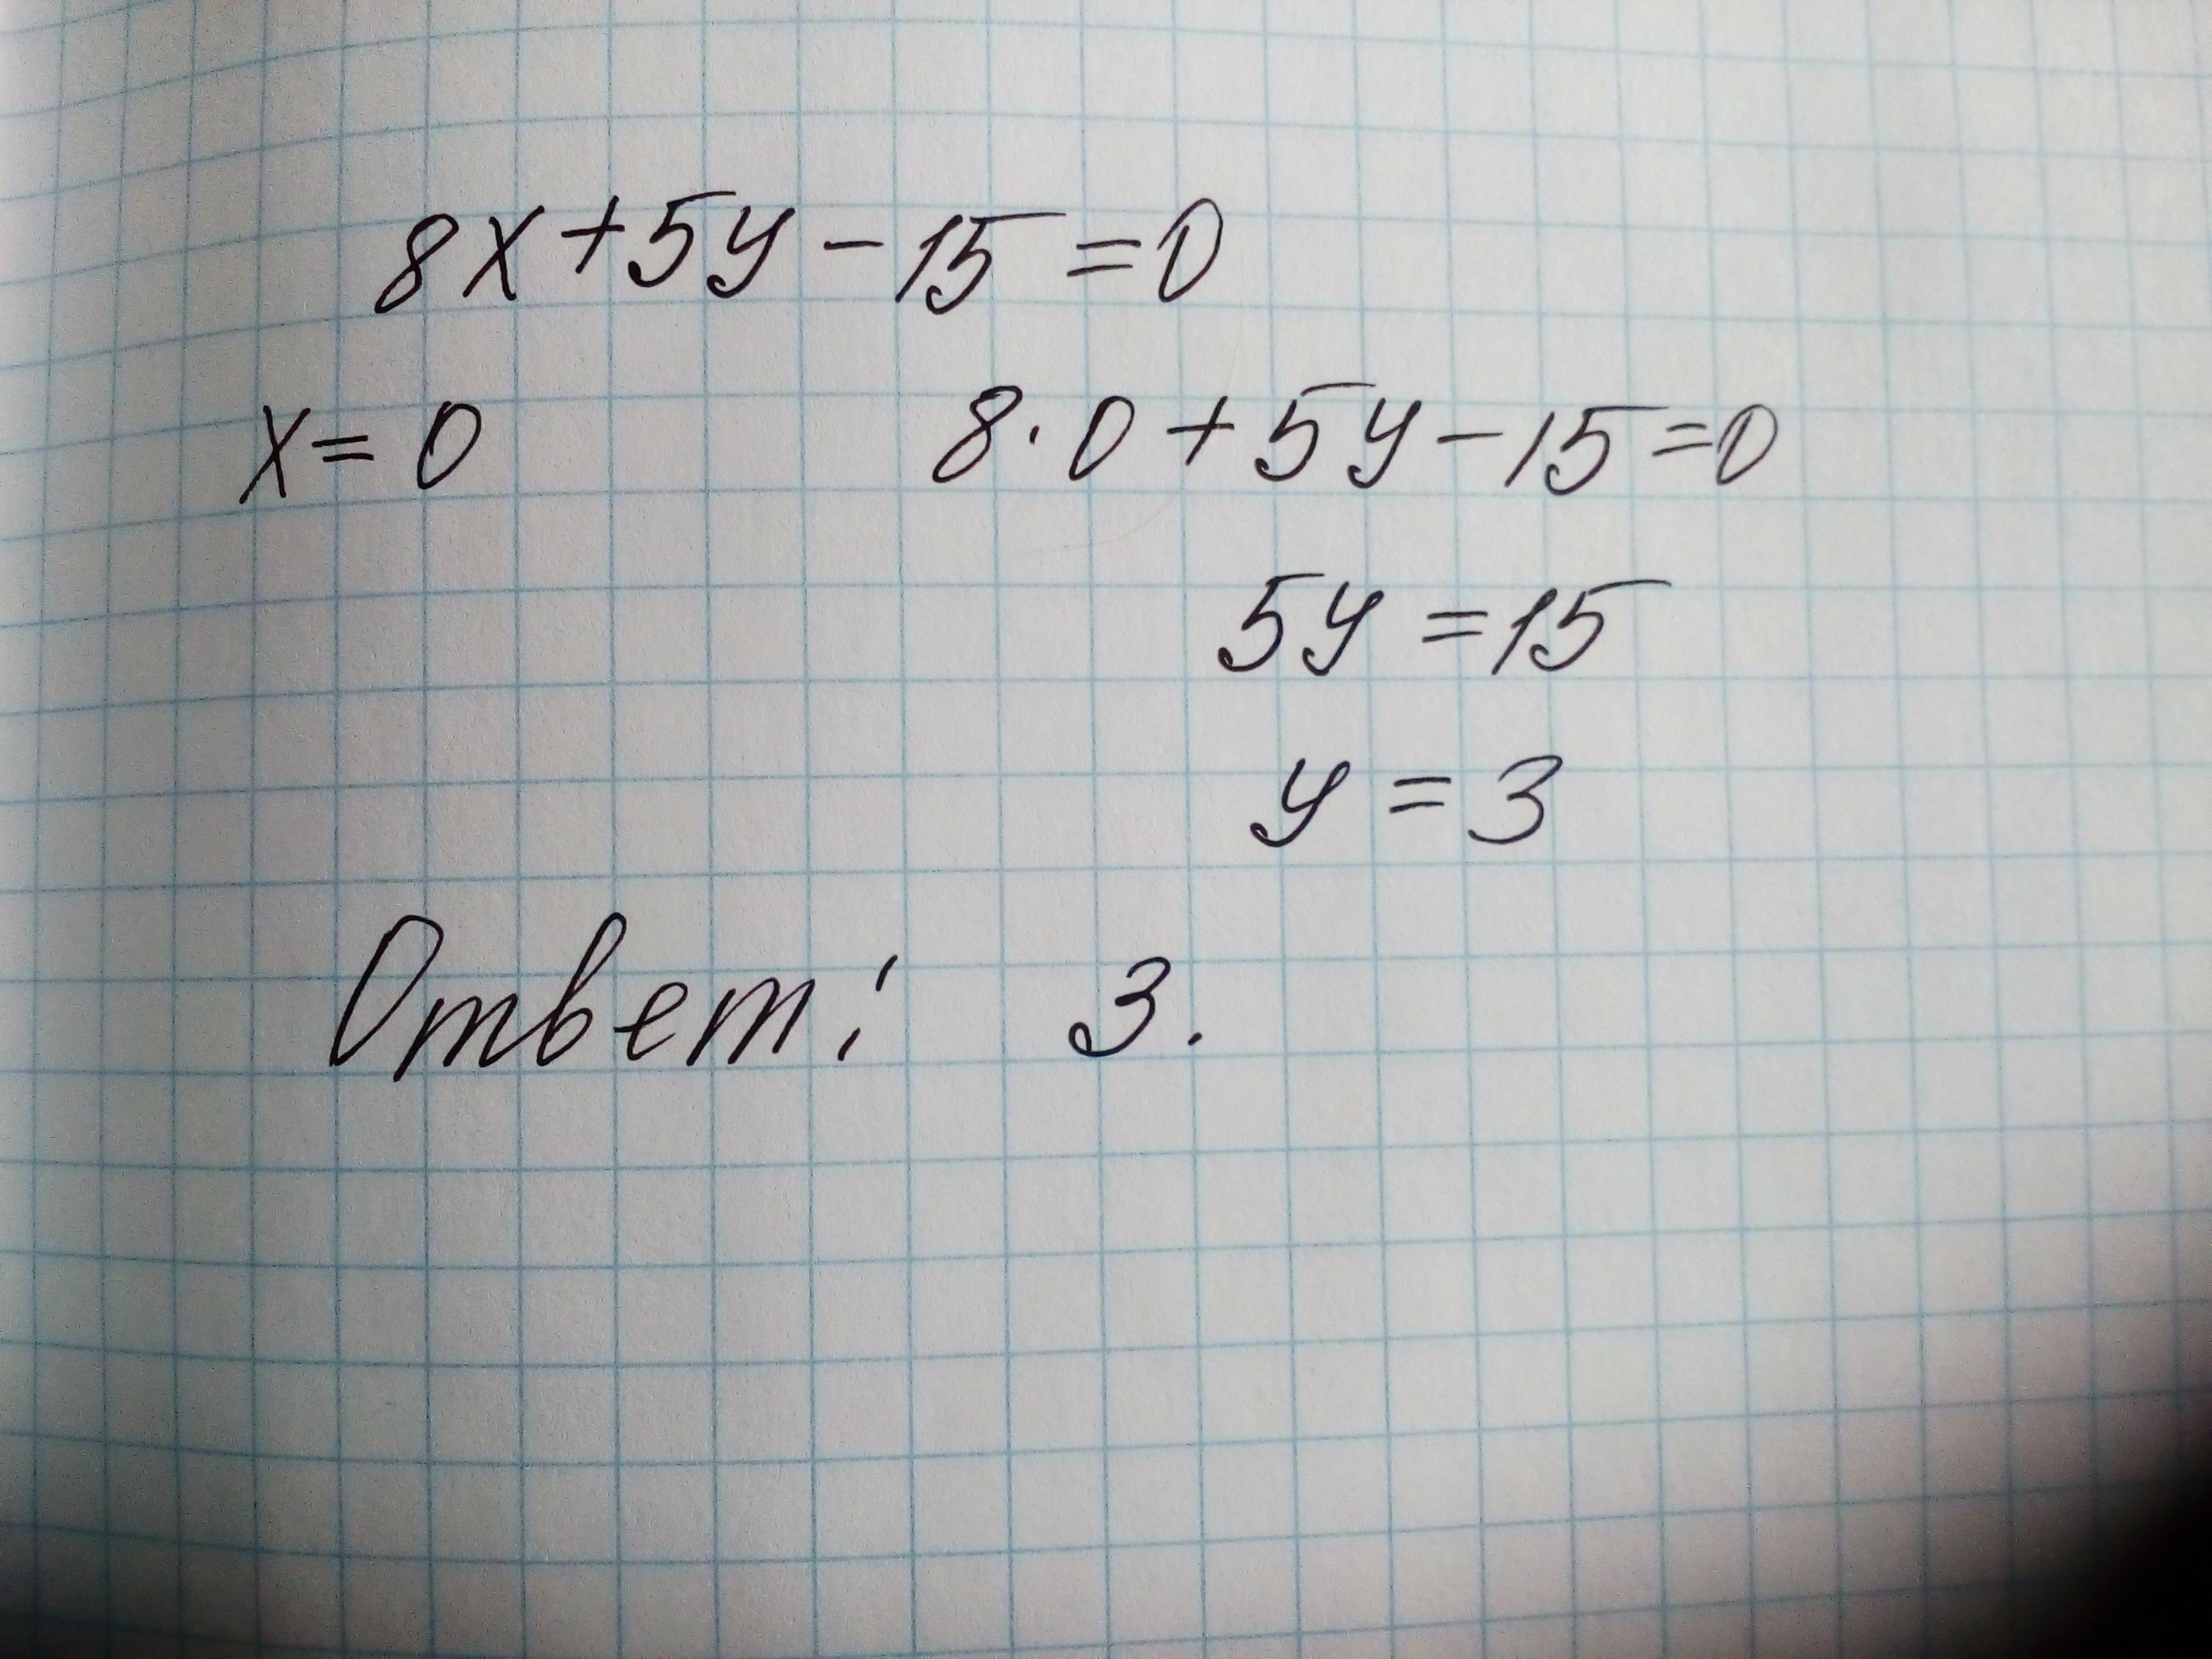 8x+5y-15=0
x=0 8·0+5y-15=0
5y=15
y=3
Ответ: 3.